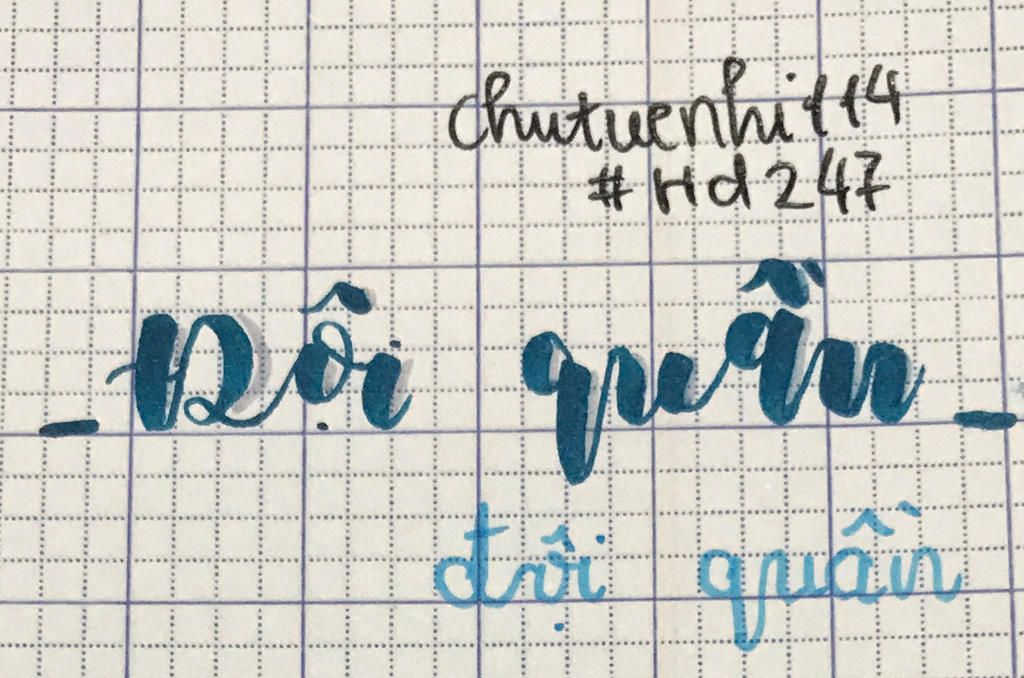 chutuenhi114
#Hd247
_ Đội quần _
đội quần